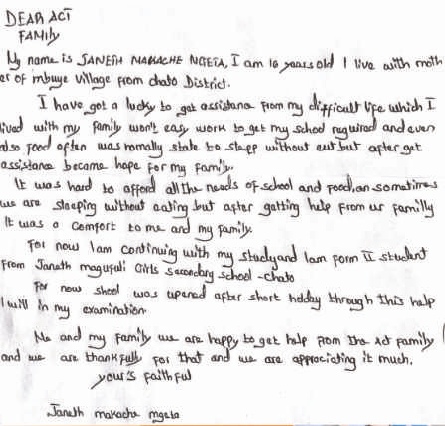 DEAR ACT
FAMILY
My name is JANETH MAKACHE NGETA, I am 16 years old I live with moth
er of imbuye village from chato District.
I have got a lucky to get assistana from my difficult life which I
lived with my family won't easy work to get my school required and even
also food often was nomally state to sleep without eat but after get
assistance became hope for my family.
It was hard to afford all the needs of school and food,an sometimes
we are sleeping without eating but after getting help from ur familly
It was a comfort to me and my family.
For now I am continuing with my study and I am form II student
From Janeth magufuli Girls secondary school -chato
For now shool was upened after short holday through this help
I will in my examination.
Me and my family we are happy to get help from the Act family
and we are thankfull for that and we are approciating it much.
your's faithful
Janeth makache mgeta